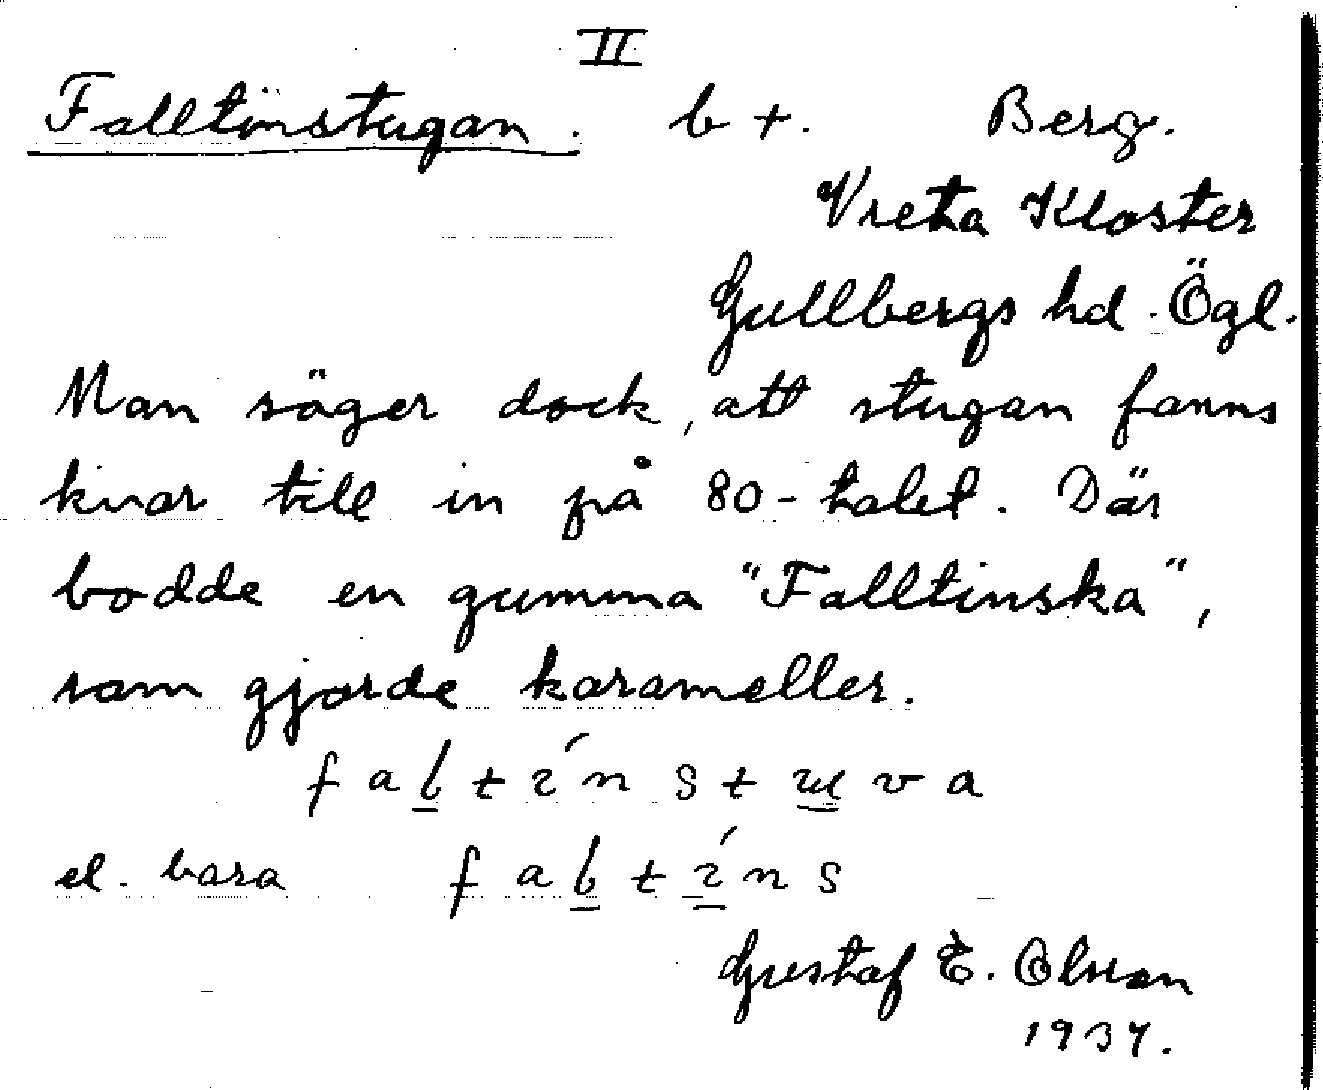 II
Falltinstugan. b +. Berg.
Vreta Kloster
Gullbergs hd. Ögl.
Man säger dock, att stugan fanns
kvar till in på 80-talet. Där
bodde en gumma "Falltinska",
som gjorde karameller.
f a l t í n s t u v a
el. bara f a l t í n s
Gustaf E. Olsson
1937.